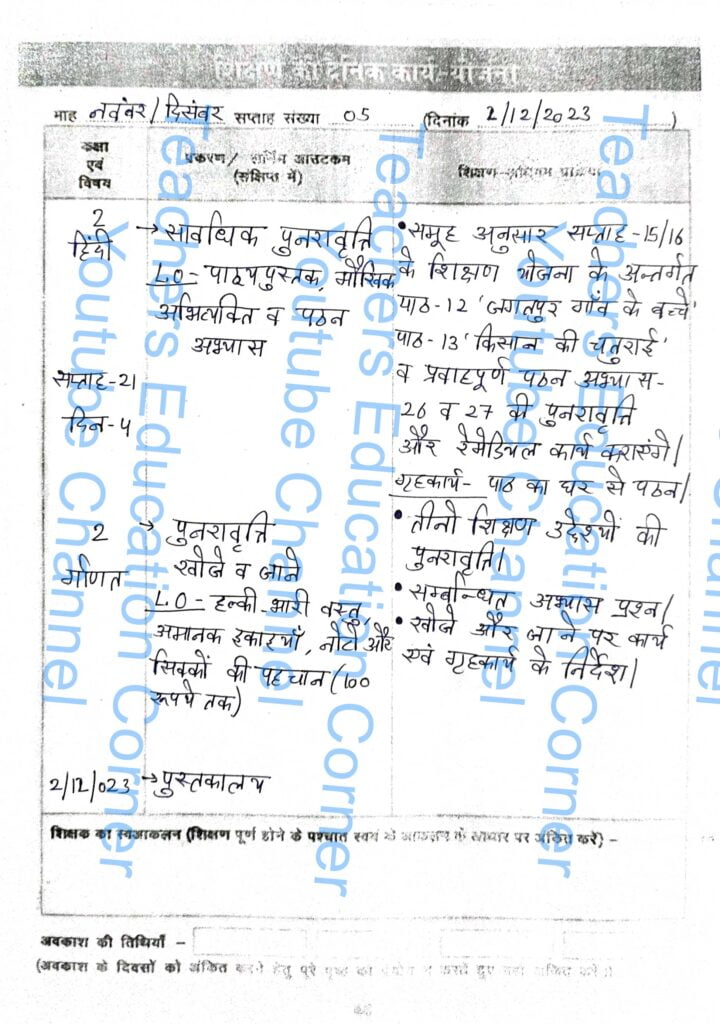 शिक्षण की दैनिक कार्य-योजना
माह नवंबर/दिसंबर सप्ताह संख्या 05 (दिनांक 2/12/2023)
कक्षा एवं विषय
प्रकरण/ लर्निंग आउटकम (संक्षिप्त में)
शिक्षण-अधिगम प्रक्रिया
2
हिंदी
सप्ताह-21
दिन-4
→ सावधिक पुनरावृत्ति
LO- पाठ्यपुस्तक, मौखिक
अभिव्यक्ति व पठन
अभ्यास
• समूह अनुसार सप्ताह-15/16
के शिक्षण योजना के अन्तर्गत
पाठ-12 'जगतपुर गाँव के बच्चे'
पाठ-13 'किसान की चतुराई'
व प्रवाहपूर्ण पठन अभ्यास-
26 व 27 की पुनरावृत्ति
और रेमेडियल कार्य कराएंगे।
गृहकार्य- पाठ का घर से पठन।
2
गणित
→ पुनरावृत्ति
खोजें व जाने
LO- हल्की-भारी वस्तु,
अमानक इकाइयाँ, नोटों और
सिक्कों की पहचान (100
रूपये तक)
• तीनों शिक्षण उद्देश्यों की
पुनरावृत्ति।
• सम्बन्धित अभ्यास प्रश्न।
• खोजें और जाने पर कार्य
एवं गृहकार्य के निर्देश।
2/12/023 → पुस्तकालय
शिक्षक का स्वआकलन (शिक्षण पूर्ण होने के पश्चात स्वयं के आकलन के आधार पर अंकित करें) -
अवकाश की तिथियाँ -
(अवकाश के दिवसों को अंकित करने हेतु पूरे पृष्ठ का प्रयोग न करते हुए यहाँ अंकित करें।)
Teachers Education Corner
Youtube Channel
Teachers Education Corner
Youtube Channel
Teachers Education Corner
Youtube Channel